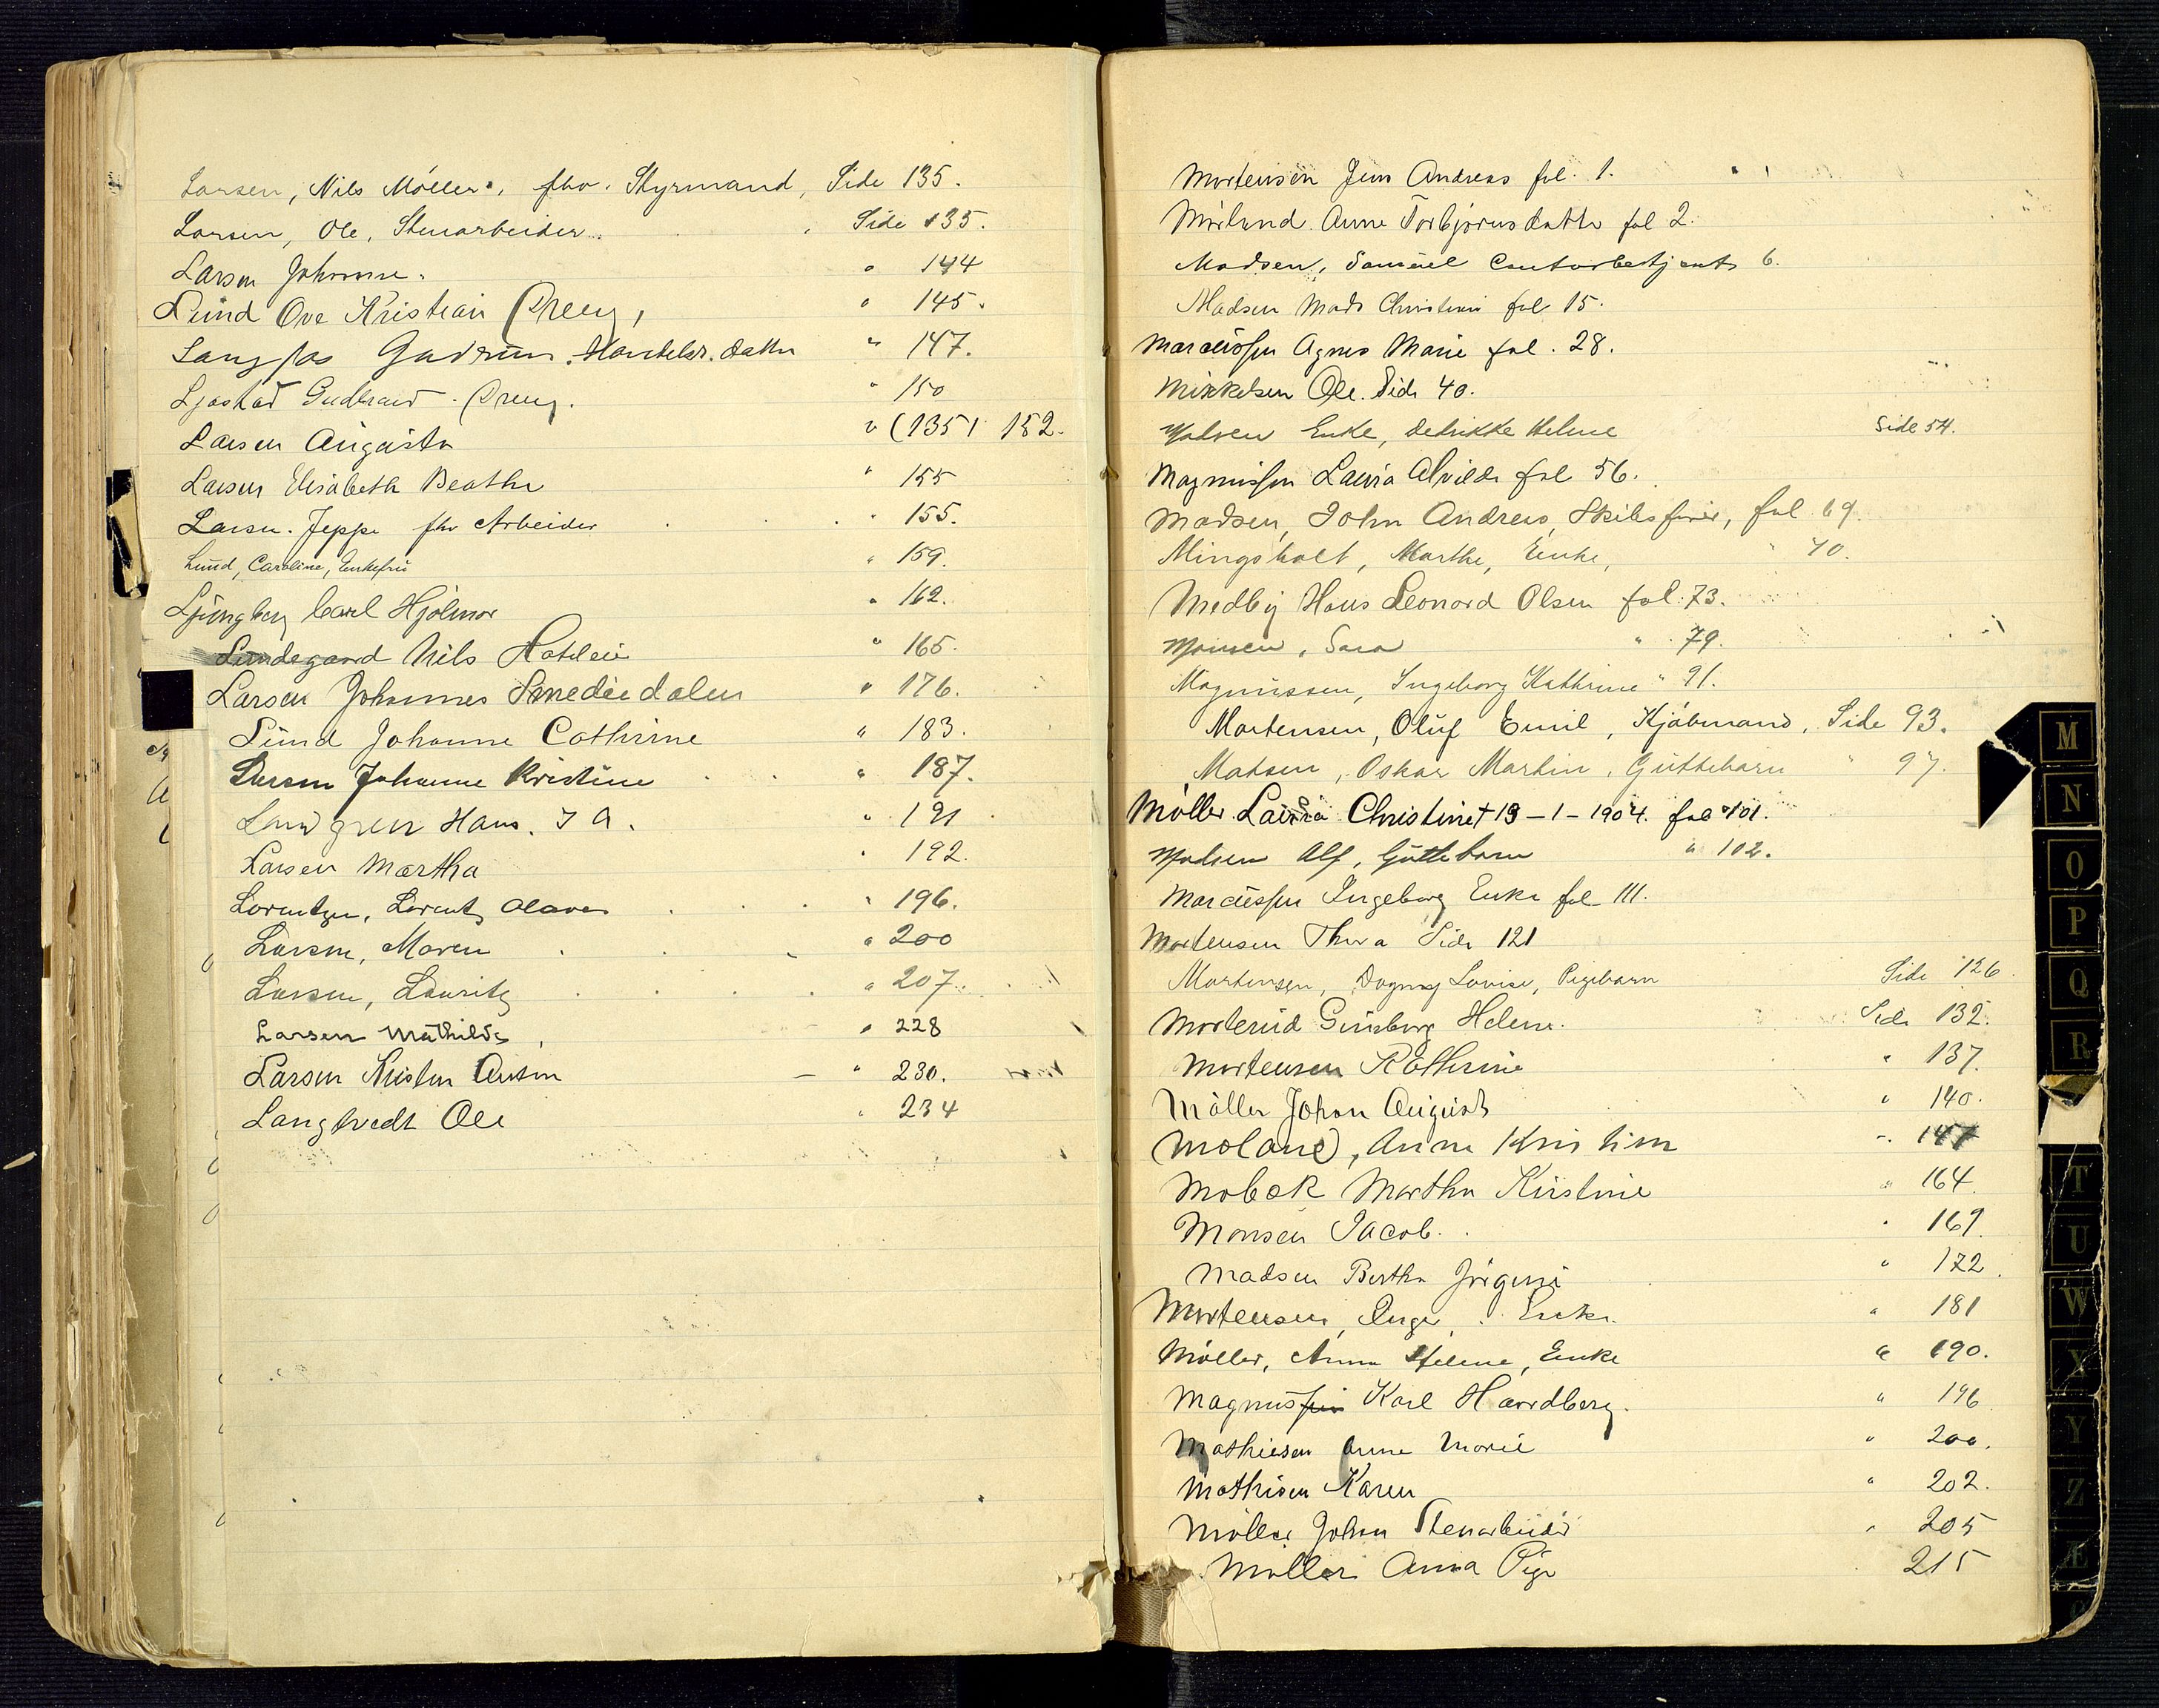 Larsen, Nils Möller, fhv. Styrmand, Side 135.
Larsen, Ole, Stenarbeider. Side 135.
Larsen Johanne. " 144
Lund Ove Kristian (Dreng, " 145.
Langfas Gudrun. Handelsr. datter " 147.
Ljostad Gudbrand - (Dreng. " 150
Larsen Augusta " (135) 152.
Larsen Elisabeth Beathe " 155
Larsen. Jeppe fhv Arbeider " 155.
Lund, Caroline, Enkefru " 159.
Ljungberg Carl Hjalmar " 162.
Lundegaard Nils Hoteleier " 165.
Larsen Johannes Smededalen " 176.
Lund Johanne Cathrine " 183.
Larsen Johanne Kristine " 187.
Landgren Hans. J A. " 191
Larsen Martha " 192.
Lorentzen, Lorentz Olaves " 196.
Larsen, Maren " 200
Larsen, Lauritz " 207.
Larsen Mathilde, " 228
Larsen Kristen Anton — " 230.
Langtvedt Ole " 234
Mortensen Jens Andreas fol. 1.
Mörlund Anne Torbjørnsdatter fol 2.
Madsen, Samuel Contorbetjent 6.
Madsen Mads Christian fol 15.
Marcussen Agnes Marie fol. 28.
Mikkelsen Ole. Side 40.
Madsen Enke, Hedrikke Helene Side 54.
Magnussen Laura Alvilde fol 56.
Madsen, John Andreas, Skibsfører, fol 69.
Mingsholt, Marthe, Enke, " 70.
Medby Hans Leonard Olsen fol. 73.
Monsen, Sara " 79.
Magnussen, Ingeborg Kathrine " 91.
Mortensen, Oluf Emil, Kjöbmand, Side 93.
Matsen, Oskar Martin, Guttebarn " 97.
Möller Laura Christine † 13-1-1904. fol 101.
Madsen Alf, Guttebarn " 102.
Marcussen Ingeborg Enke fol 111.
Mortensen Thora Side 121
Mortensen, Dagny Lovise, Pigebarn Side 126.
Morterud Gunborg Helene. Side 132.
Mortensen Kathrine " 137.
Möller Johan August " 140.
Moland, Anne Kristine " 147
Mobæk Marthe Kirstine " 164
Monsen Jacob. " 169.
Madsen Berthe Jörgine " 172.
Mortensen, Inger, Enke. " 181
Möller, Anne Helene, Enke " 190.
Magnussen Karl Haardberg. " 196
Mathiesen Anne Marie " 200.
Mathisen Karen " 202.
Möller Johan Stenarbeider " 205
Møller Anna Pige 215
M
N
O
P
Q
R
T
U
W
X
Y
Z
Æ